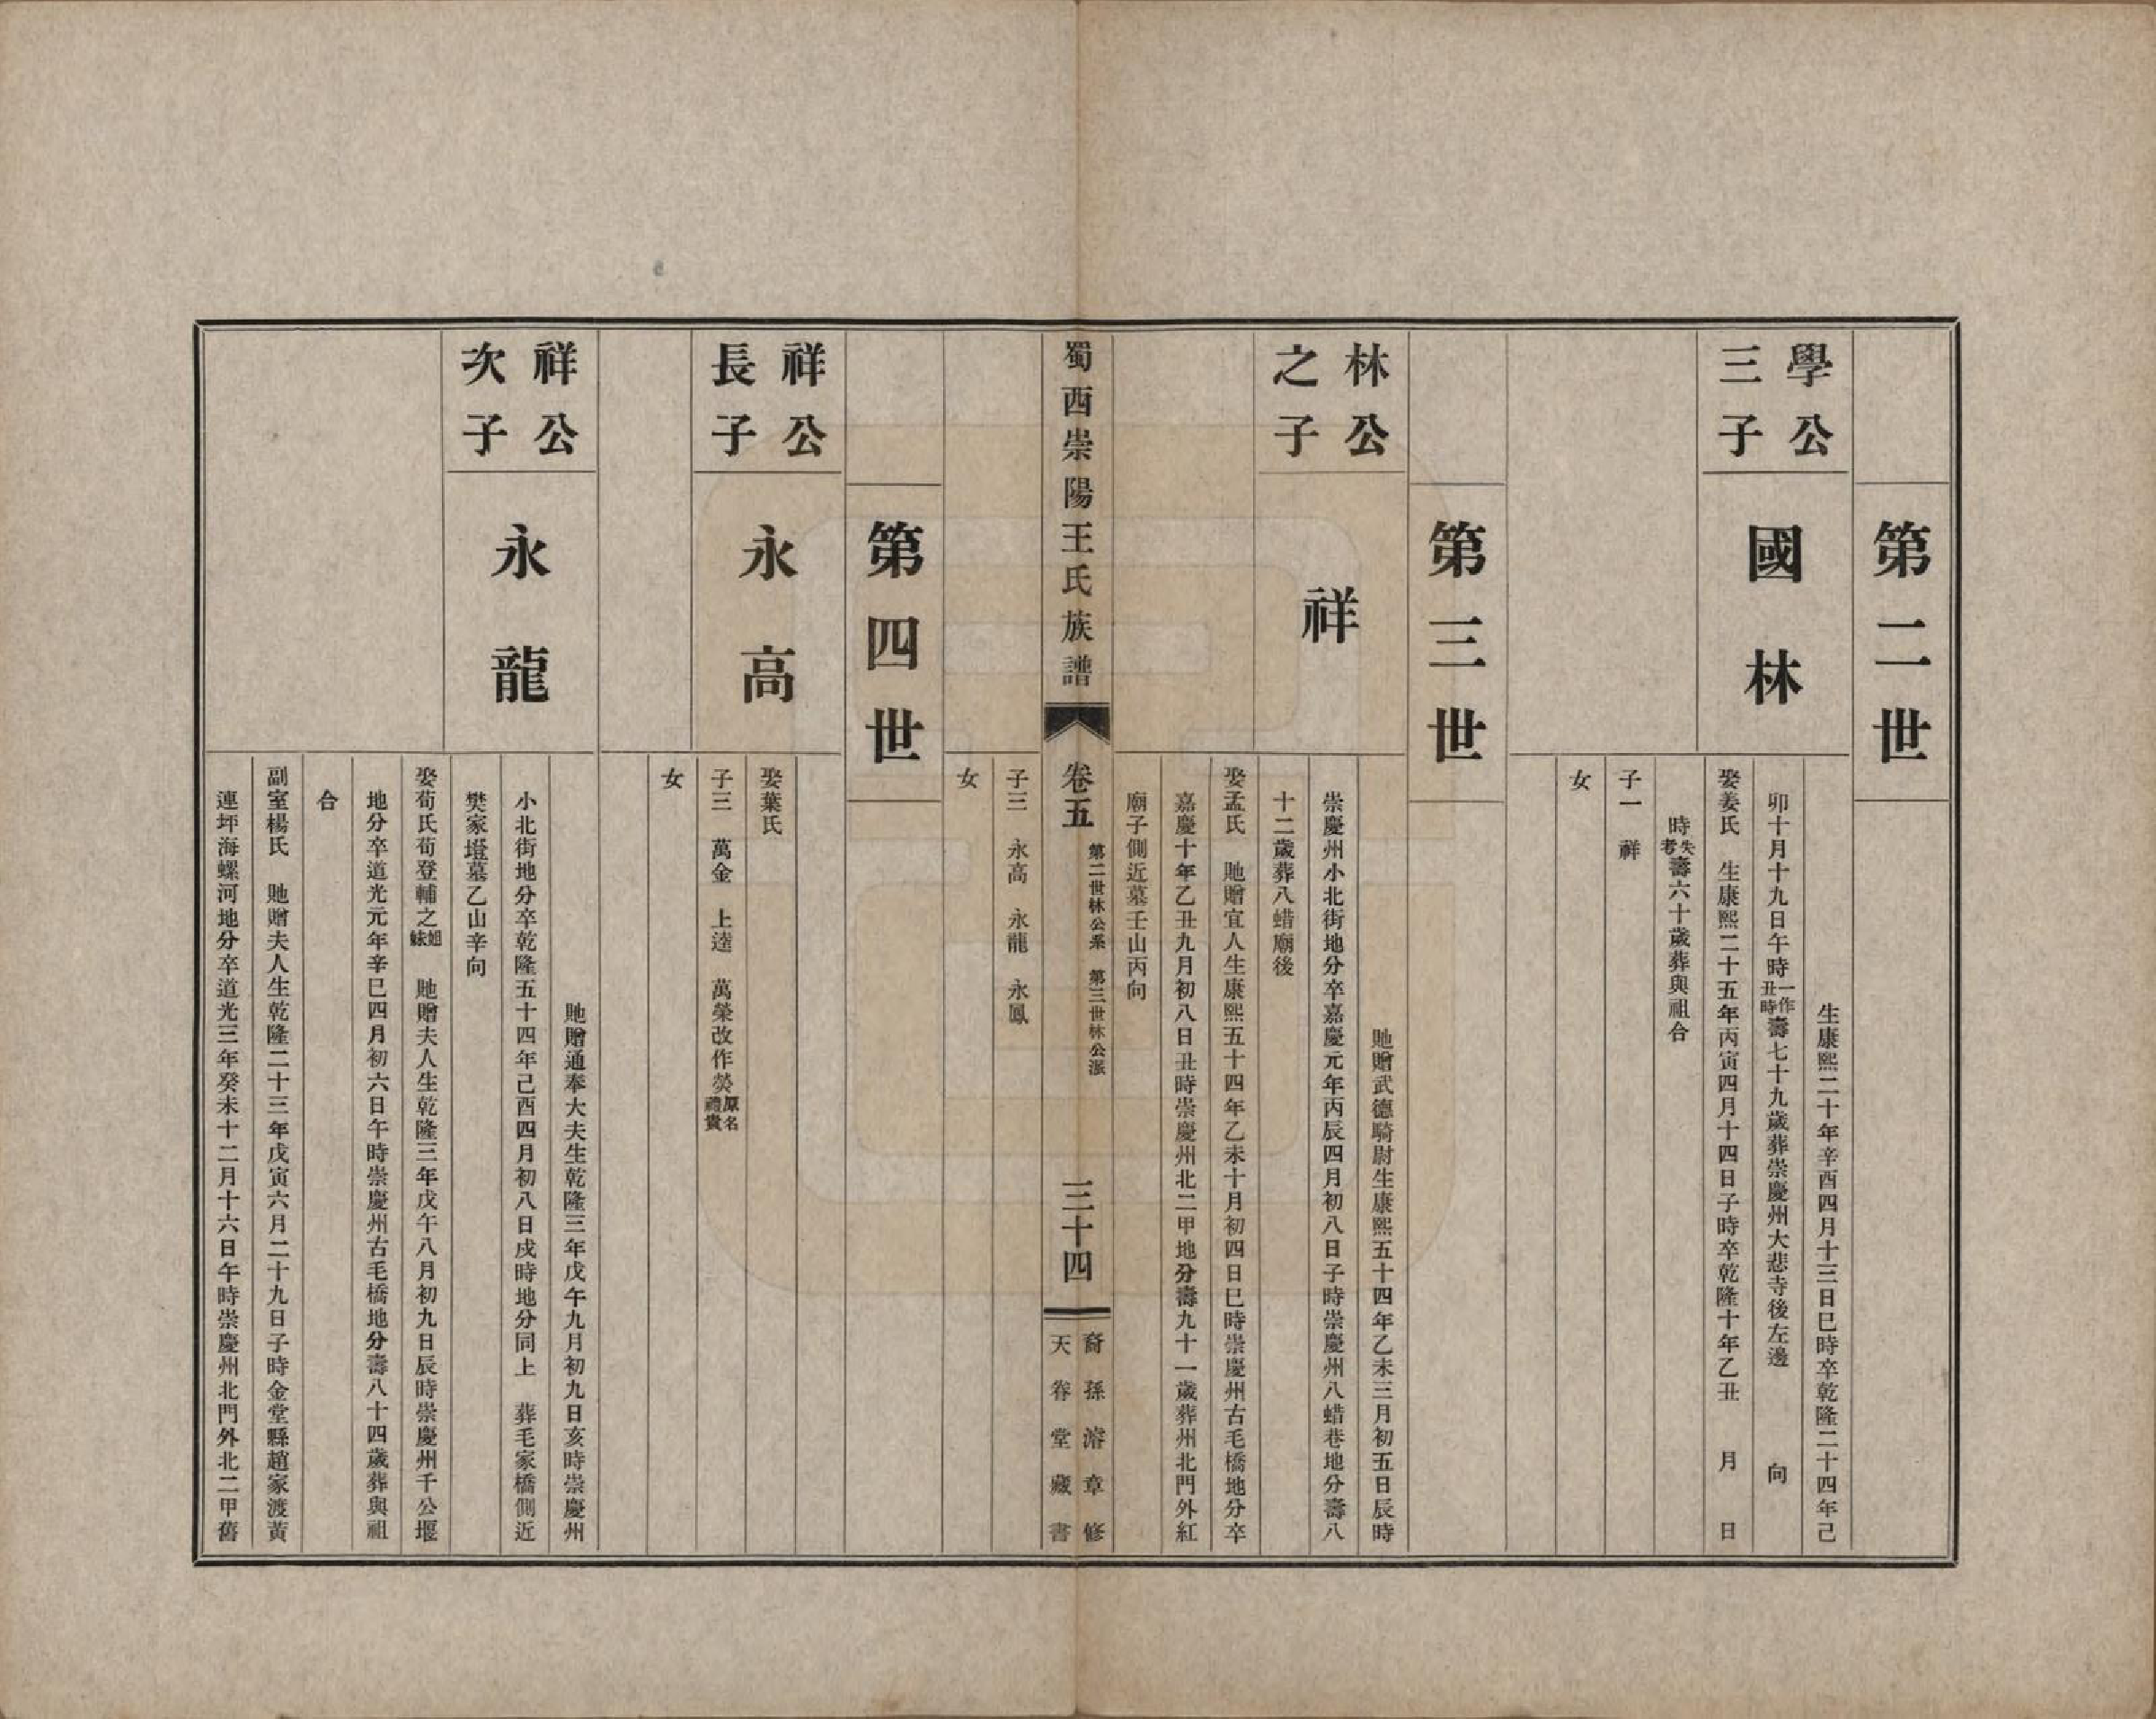 第二世
學公
三子
國林
生康熙二十年辛酉四月十三日巳時卒乾隆二十四年己
卯十月十九日午時一作丑時壽七十九歲葬崇慶州大悲寺後左邊　向
娶姜氏　生康熙二十五年丙寅四月十四日子時卒乾隆十年乙丑　月　日
時失考壽六十歲葬與祖合
子一　祥
女
第三世
林公
之子
祥
貤贈武德騎尉生康熙五十四年乙未三月初五日辰時
崇慶州小北街地分卒嘉慶元年丙辰四月初八日子時崇慶州八蜡巷地分壽八
十二歲葬八蜡廟後
娶孟氏　貤贈宜人生康熙五十四年乙未十月初四日巳時崇慶州古毛橋地分卒
嘉慶十年乙丑九月初八日丑時崇慶州北二甲地分壽九十一歲葬州北門外紅
廟子側近墓壬山丙向
蜀西崇陽王氏族譜
卷五
第二世林公系　第三世林公派
三十四
裔孫濬章修
天眷堂藏書
子三　永高　永龍　永鳳
女
第四世
祥公
長子
永高
娶葉氏
子三　萬金　上逵　萬榮改作榮原名禮貴
女
祥公
次子
永龍
貤贈通奉大夫生乾隆三年戊午九月初九日亥時崇慶州
小北街地分卒乾隆五十四年己酉四月初八日戌時地分同上　葬毛家橋側近
樊家墱墓乙山辛向
娶荀氏荀登輔之姐妹　貤贈夫人生乾隆三年戊午八月初九日辰時崇慶州千公堰
地分卒道光元年辛巳四月初六日午時崇慶州古毛橋地分壽八十四歲葬與祖
合
副室楊氏　貤贈夫人生乾隆二十三年戊寅六月二十九日子時金堂縣趙家渡黃
連坪海螺河地分卒道光三年癸未十二月十六日午時崇慶州北門外北二甲舊